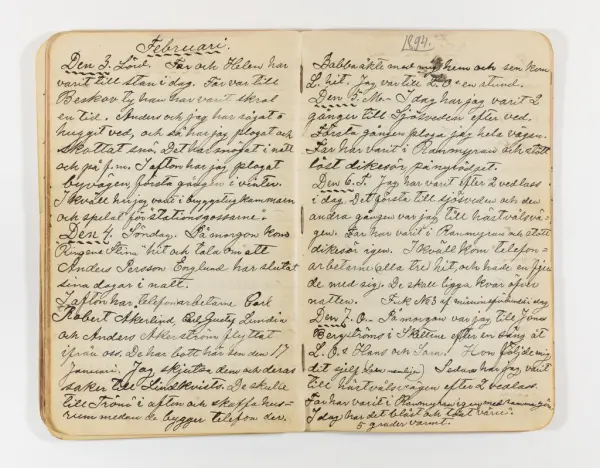 Februari.
Den 3. Lörd. Far och Helen har
varit till stan i dag. Far var till
Beskov ty han har varit skral
en tid. Anders och jag har sågat o
huggit ved, och så har jag plogat och
skottat snö. Det har snöjat i natt
och på f.m. I afton har jag plogat
byvägen första gången i vinter.
I kväll har jag varit i byggstugkammaren
och spelat för "stationsgossarne".
Den 4. Söndag. På morgon kom
"Ringens Stina" hit och tala om att
Anders Persson Englund har slutat
sina dagar i natt.
I afton har telefonarbetarne Carl
Robert Åkerlind, Carl Gustaf Lundin
och Anders Åkerström flyttat
ifrån oss. De har bott här sen den 17
Januari. Jag skjutsa dem och deras
saker till Lindkvists. De skulle
till Trönö i afton och skaffa hus=
rum medan de bygger telefon der.
1894.
Babba åkte med mig hem och sen kom
L. hit. Jag var till L. O. en stund.
Den 5. M. I dag har jag varit 2
gånger till Sjösveden efter ved.
Första gången ploga jag hela vägen.
Far har varit i Ranmyran och stött
löst dikesör på nyhödjet.
Den 6. T. Jag har varit efter 2 vedlass
i dag. Det första till sjösveden och den
andra gången var jag till hästvalsvä=
gen. Far har varit i Ranmyran och stött
dikesör igen. I kväll kom telefon=
arbetarne alla tre hit, och hade en
de med sig. De skall ligga kvar öfver
natten. Fick No 3 af i dag.
Den 7. O. På morgon var jag till Jons
Bergströms i Skettene efter en säng åt
L. O. Hans och Sam. Hon följde mig
det sjelf Sedan har jag varit
till hästvalsvägen efter 2 vedlass.
Far har varit i Ranmyran igen med samma gör.
I dag har det blåst och töat värre.
5 grader varmt.